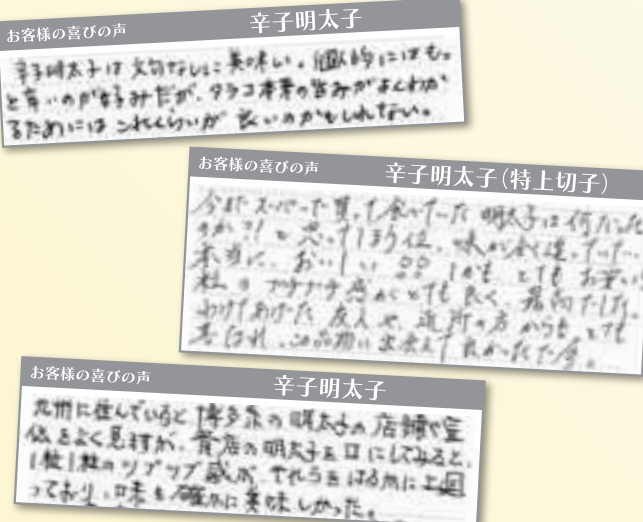 お客様の喜びの声
辛子明太子
辛子明太子は文句なしに美味しい。個人的にはもっ
と辛いのが好みだが、タラコ本来の旨みがよくわか
るためにはこれくらいが良いのかもしれない。
お客様の喜びの声
辛子明太子(特上切子)
今までスーパーで買って食べていた明太子は何だった
のか?!と思ってしまう位、味が全く違っていた。
本当においしい!! しかも とても お安い
粒のプチプチ感がとても良く、最高でした。
わけてあげた友人や、近所の方からも とても
喜ばれ、この品物に出会えて良かったです。
お客様の喜びの声
辛子明太子
九州に住んでいると博多系の明太子の店舗や宣
伝をよく見ますが、貴店の明太子を口にしてみると、
1粒1粒のツブツブ感が、それらをはるかに上回
っており、味も確かに美味しかった。